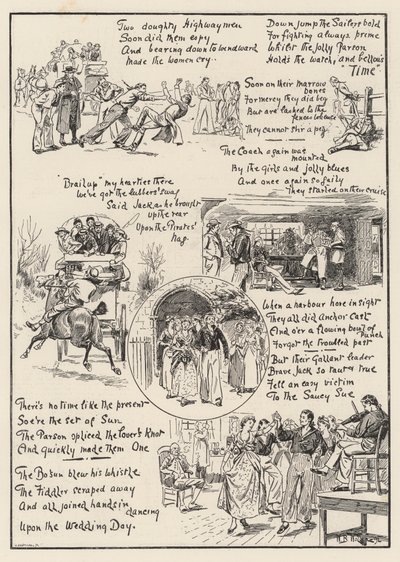 Two doughty Highwaymen
Soon did them espy
And bearing down to windward
Made the women cry.
Down jump the Sailors bold
For fighting always prime
Whilst the Jolly Parson
Holds the watch, and bellows
"Time"
Soon on their marrow
bones
For mercy they did beg
But are lashed to the
fence
They cannot stir a peg
The Coach again was
mounted
By the girls and jolly blues
And once again so gaily
They started on their cruise
"Brail up" my hearties there
We've got the lubbers' swag
Said Jack, as he brought
up the rear
Upon the Pirates'
Nag.
When a harbour hove in sight
They all did Anchor Cast
And o'er a flowing bowl of
Punch
Forgot the troubled past
But their Gallant leader
Brave Jack so taut & true
Fell an easy victim
To the Saucy Sue
There's no time like the present
So e're the set of Sun
The Parson spliced the lover's Knot
And quickly made them One
The Bo'sun blew his whistle
The Fiddler scraped away
And all joined hands in
dancing
Upon the Wedding Day.